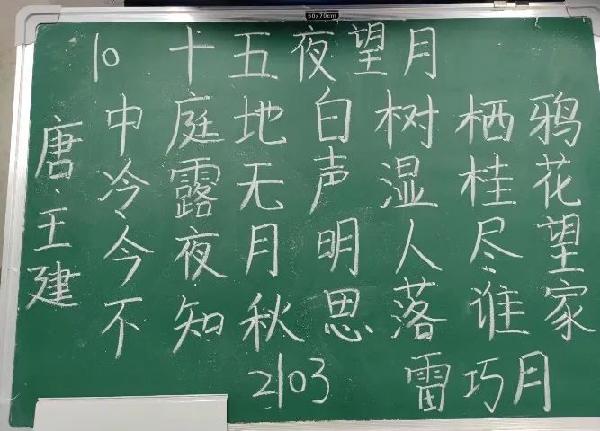 50x70cm
10 十五夜望月
唐·王建
中庭地白树栖鸦
冷露无声湿桂花
今夜月明人尽望
不知秋思落谁家
2103 雷巧月